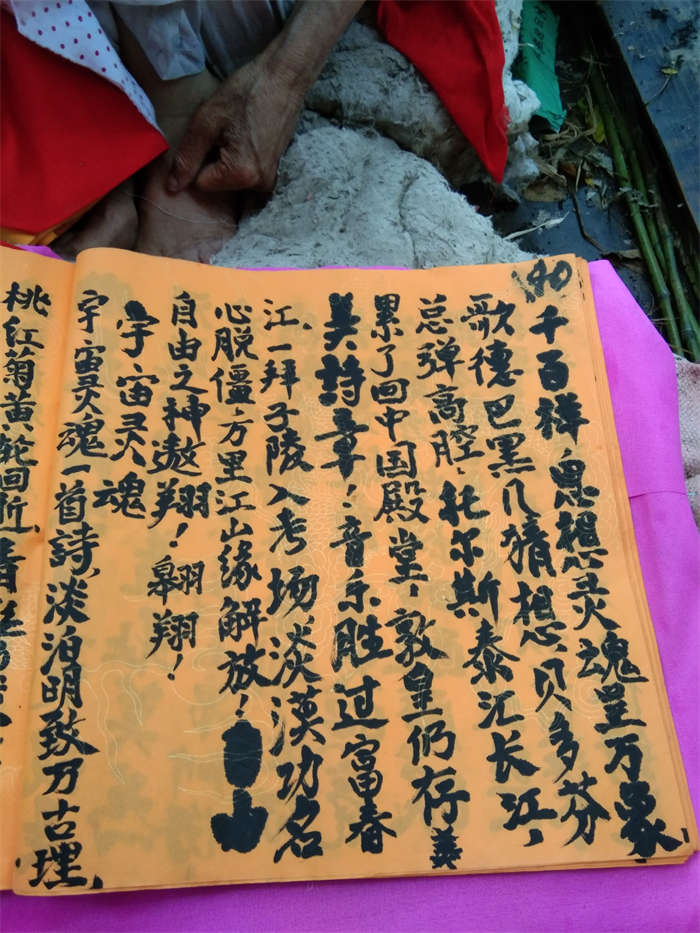 140
千百祥思想灵魂呈万象
歌德巴黑几猜想、贝多芬
总弹高腔、托尔斯泰汇长江，
累了回中国殿堂！敦皇仍存美
美詩章！音乐胜过富春
江、一拜子陵入考场、淡漠功名
心脱僵、万里江山缘解放！
自由之神遨翔！翱翔！
宇宙灵魂
宇宙灵魂一首詩、淡泊明致万古埋、
桃红菊黄